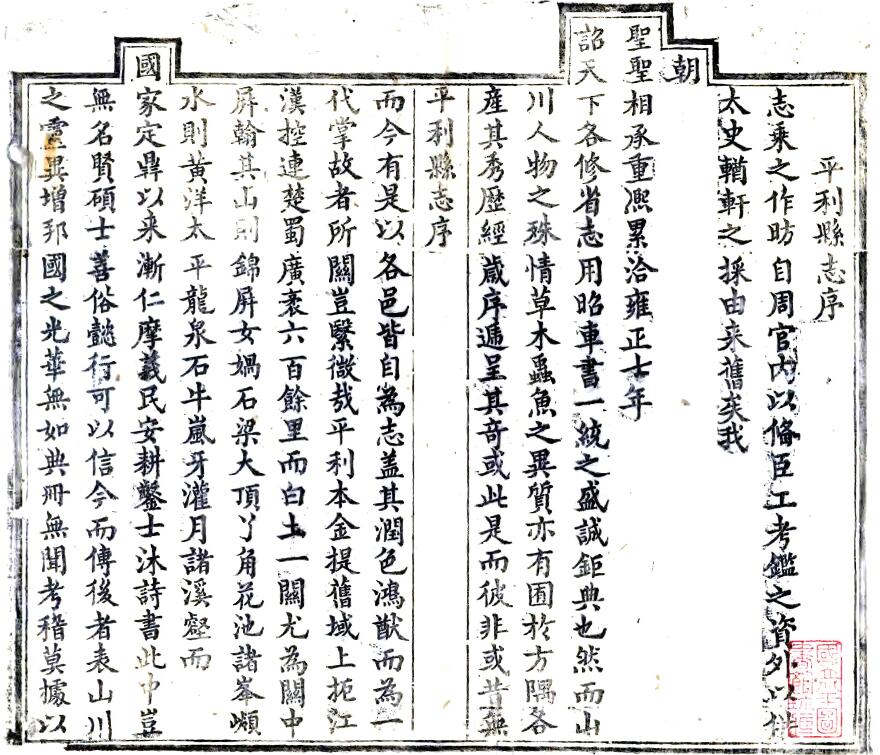 平利縣志序
志乘之作昉自周官內以備臣工考鑑之資外以供
太史輶軒之採由来舊矣我
朝
聖聖相承重凞累洽雍正十年
詔天下各修省志用昭車書一統之盛誠鉅典也然而山
川人物之殊情草木蟲魚之異質亦有囿於方隅各
産其秀歷經歲序遞呈其奇或此是而彼非或昔無
平利縣志序
而今有是以各邑皆自為志盖其潤色鴻猷而為一
代掌故者所關豈緊微哉平利本金提舊域上扼江
漢控連楚蜀廣袤六百餘里而白土一關尤為關中
屏翰其山則錦屏女媧石梁大頂丫角花池諸峯巔
水則黃洋太平龍泉石牛嵐牙灌月諸溪壑而
國家定鼎以来漸仁摩義民安耕鑿士沐詩書此中豈
無名賢碩士善俗懿行可以信今而傳後者表山川
之靈異增邦國之光華無如典冊無聞考稽莫據以